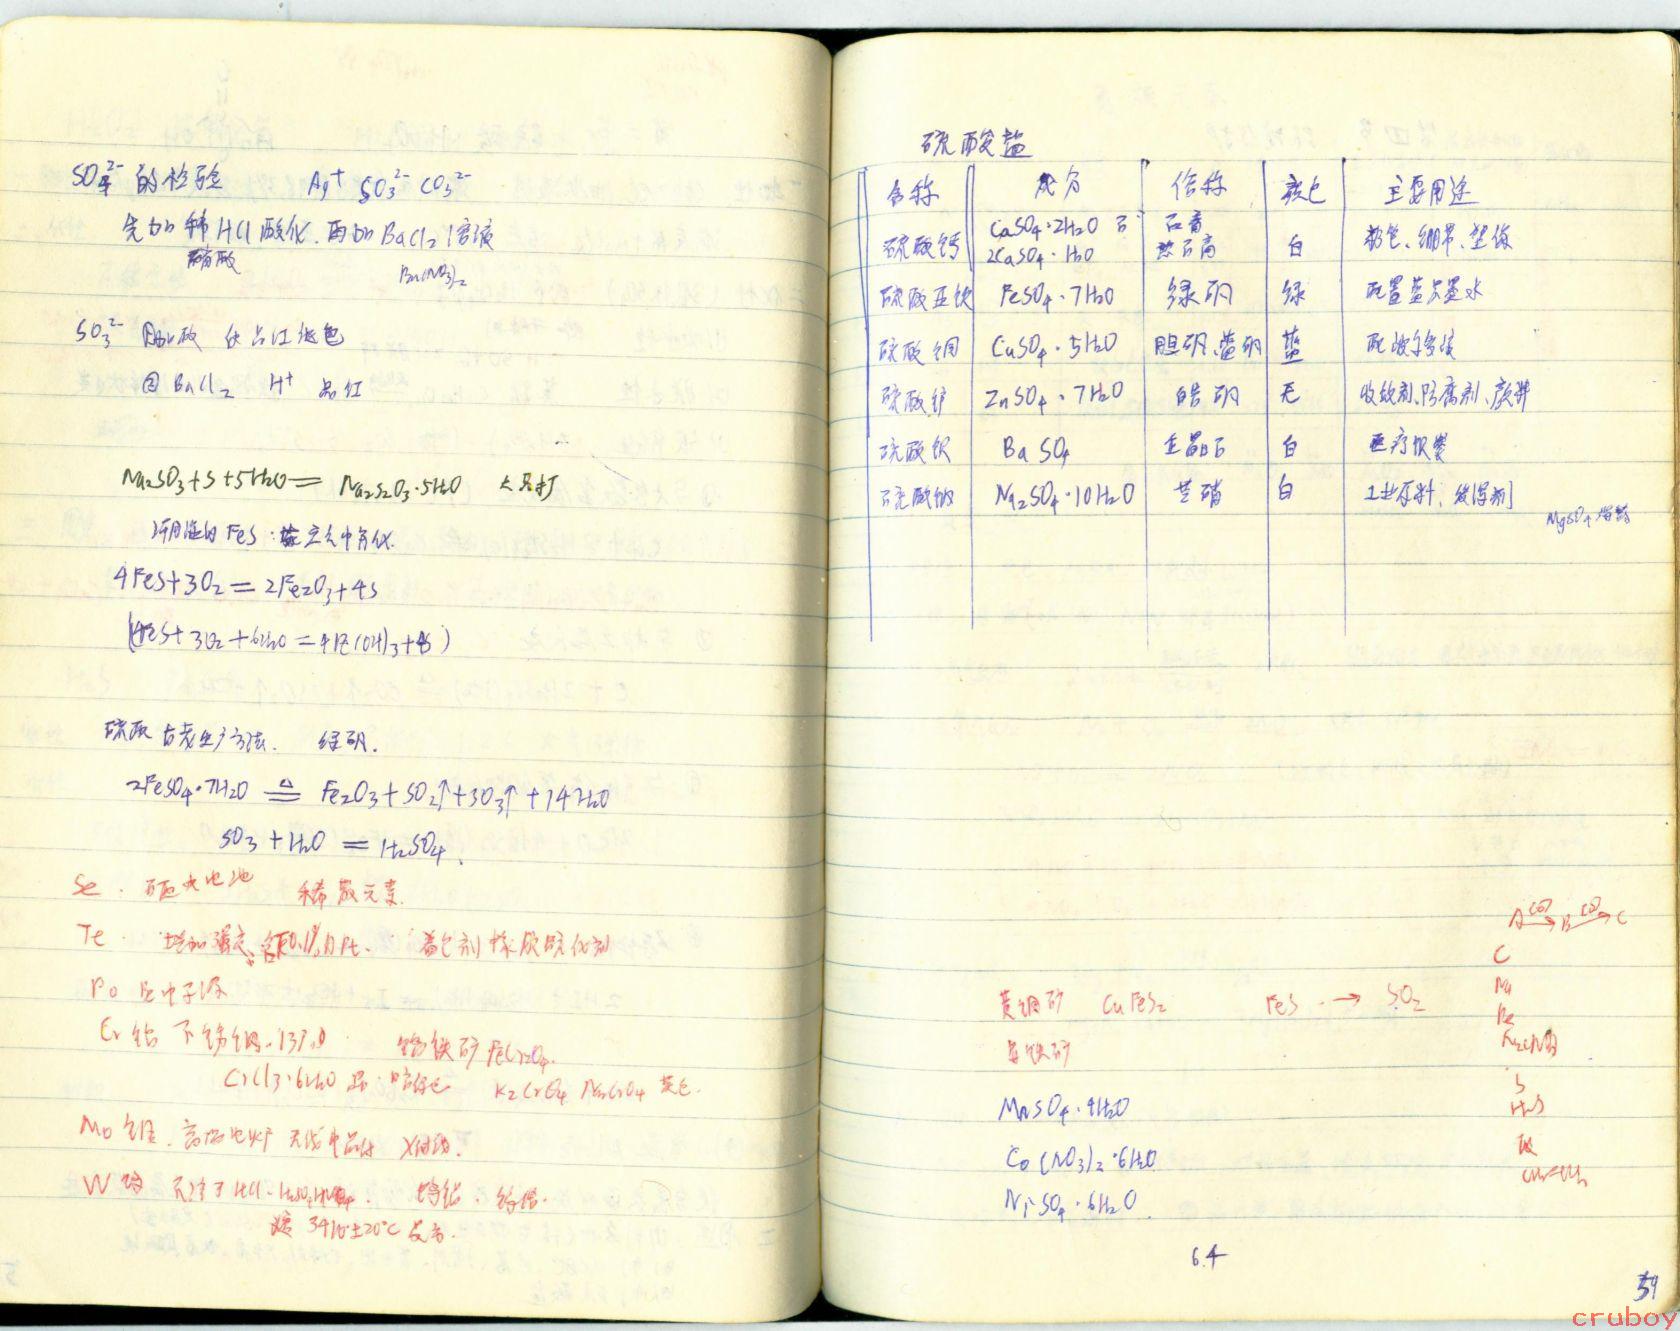 SO₄²⁻ 的检验 Ag⁺ SO₃²⁻ CO₃²⁻
先加稀HCl酸化.再加BaCl₂溶液
硝酸 Ba(NO₃)₂
SO₃²⁻ 使品红褪色
② BaCl₂ H⁺ 品红
Na₂SO₃+S+5H₂O══Na₂S₂O₃·5H₂O 大苏打
FeS:在空气中氧化.
4FeS+3O₂=2Fe₂O₃+4S
(4FeS+3O₂+6H₂O=4Fe(OH)₃+4S)
硫酸古老生产方法. 绿矾.
2FeSO₄·7H₂O ≜ Fe₂O₃+SO₂↑+SO₃↑+14H₂O
SO₃+H₂O=H₂SO₄.
Se. 硒光电池 稀散元素.
Te. 增加强度. 着色剂 橡胶硫化剂
Po 中子源
Cr 铬 不锈钢.13% 铬铁矿 FeCr₂O₄.
CrCl₃·6H₂O 暗绿色 K₂CrO₄ Na₂CrO₄ 黄色.
Mo 钼. 高温电炉 X射线.
W 钨 不溶于HCl.
3410±20℃
硫酸盐
名称 成分 俗称 颜色 主要用途
硫酸钙 CaSO₄·2H₂O 石 石膏 白 绷带、塑像
2CaSO₄·H₂O 熟石膏
硫酸亚铁 FeSO₄·7H₂O 绿矾 绿 配置蓝黑墨水
硫酸铜 CuSO₄·5H₂O 胆矾、蓝矾 蓝 配波尔多液
硫酸锌 ZnSO₄·7H₂O 皓矾 无 收敛剂、防腐剂、颜料
硫酸钡 BaSO₄ 重晶石 白 医疗钡餐
硫酸钠 Na₂SO₄·10H₂O 芒硝 白 工业原料、缓泻剂
MgSO₄
A →(O) B →(O) C
C
Na
黄铜矿 CuFeS₂ FeS → SO₂
黄铁矿
S
H₂S
MnSO₄·4H₂O
Co(NO₃)₂·6H₂O
NiSO₄·6H₂O
6.4
59
cruboy